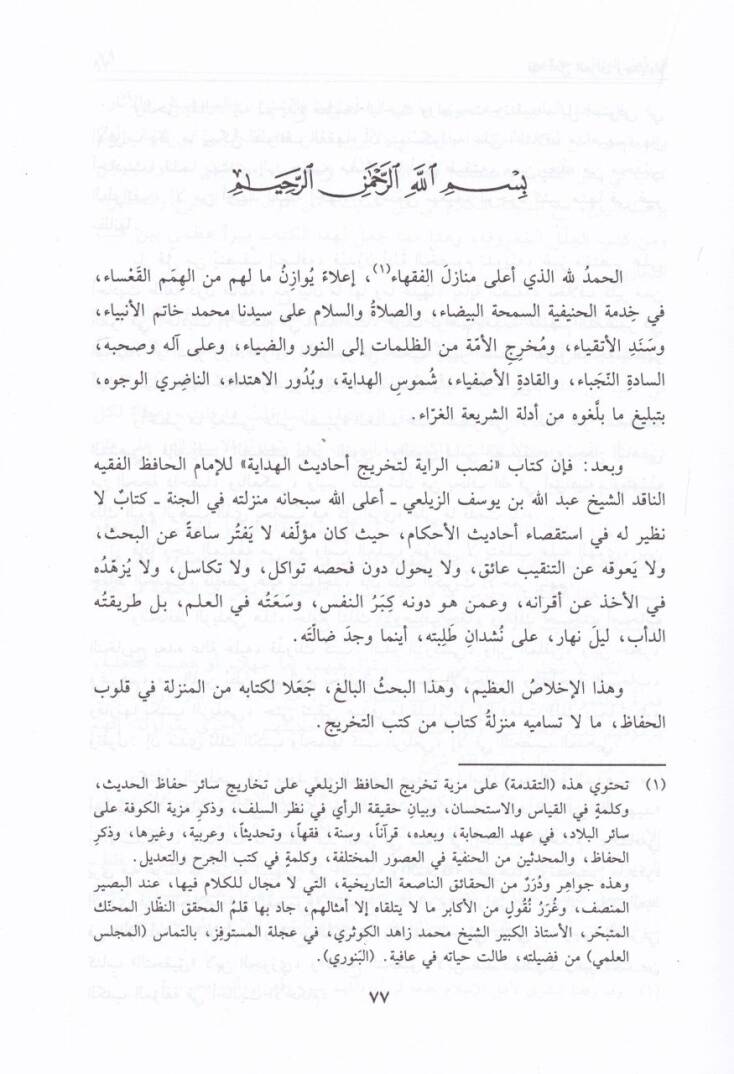 بِسْمِ اللَّهِ الرَّحْمَٰنِ الرَّحِيمِ
الحمدُ لله الذي أعلى منازلَ الفقهاء(١)، إعلاءً يُوازِنُ ما لهم من الهِمَم القَعْساء،
في خِدمة الحنيفية السمحة البيضاء، والصلاةُ والسلام على سيدنا محمد خاتم الأنبياء،
وسَنَدِ الأتقياء، ومُخرِجِ الأمّة من الظلمات إلى النور والضياء، وعلى آله وصحبه،
السادةِ النُّجَباء، والقادةِ الأصفياء، شُموسِ الهداية، وبُدُور الاهتداء، الناضِري الوجوه،
بتبليغ ما بلَّغوه من أدلة الشريعة الغرّاء.
وبعد: فإن كتاب «نصب الراية لتخريج أحاديث الهداية» للإمام الحافظ الفقيه
الناقد الشيخ عبد الله بن يوسف الزيلعي ـ أعلى الله سبحانه منزلته في الجنة ـ كتابٌ لا
نظير له في استقصاء أحاديث الأحكام، حيث كان مؤلّفه لا يَفتُر ساعةً عن البحث،
ولا يَعوقه عن التنقيب عائق، ولا يحول دون فحصه تواكل، ولا تكاسل، ولا يُزهّدُه
في الأخذ عن أقرانه، وعمن هو دونه كِبَرُ النفس، وسَعَتُه في العلم، بل طريقتُه
الدأب، ليلَ نهار، على نُشدانِ طَلِبته، أينما وجدَ ضالّتَه.
وهذا الإخلاصُ العظيم، وهذا البحثُ البالغ، جَعَلا لكتابه من المنزلة في قلوب
الحفاظ، ما لا تساميه منزلةُ كتاب من كتب التخريج.
(١) تحتوي هذه (التقدمة) على مزية تخريج الحافظ الزيلعي على تخاريج سائر حفاظ الحديث،
وكلمةٍ في القياس والاستحسان، وبيانِ حقيقة الرأي في نظر السلف، وذكرِ مزية الكوفة على
سائر البلاد، في عهد الصحابة، وبعده، قرآناً، وسنة، فقهاً، وتحديثاً، وعربية، وغيرها، وذكرِ
الحفاظ، والمحدثين من الحنفية في العصور المختلفة، وكلمةٍ في كتب الجرح والتعديل.
وهذه جواهر ودُرَرٌ من الحقائق الناصعة التاريخية، التي لا مجال للكلام فيها، عند البصير
المنصف، وغُرَرُ نُقُولٍ من الأكابر ما لا يتلقاه إلا أمثالهم، جاد بها قلمُ المحقق النظّار المحنّك
المتبحّر، الأستاذ الكبير الشيخ محمد زاهد الكوثري، في عجلة المستوفِز، بالتماس (المجلس
العلمي) من فضيلته، طالت حياته في عافية. (البَنوري).
٧٧